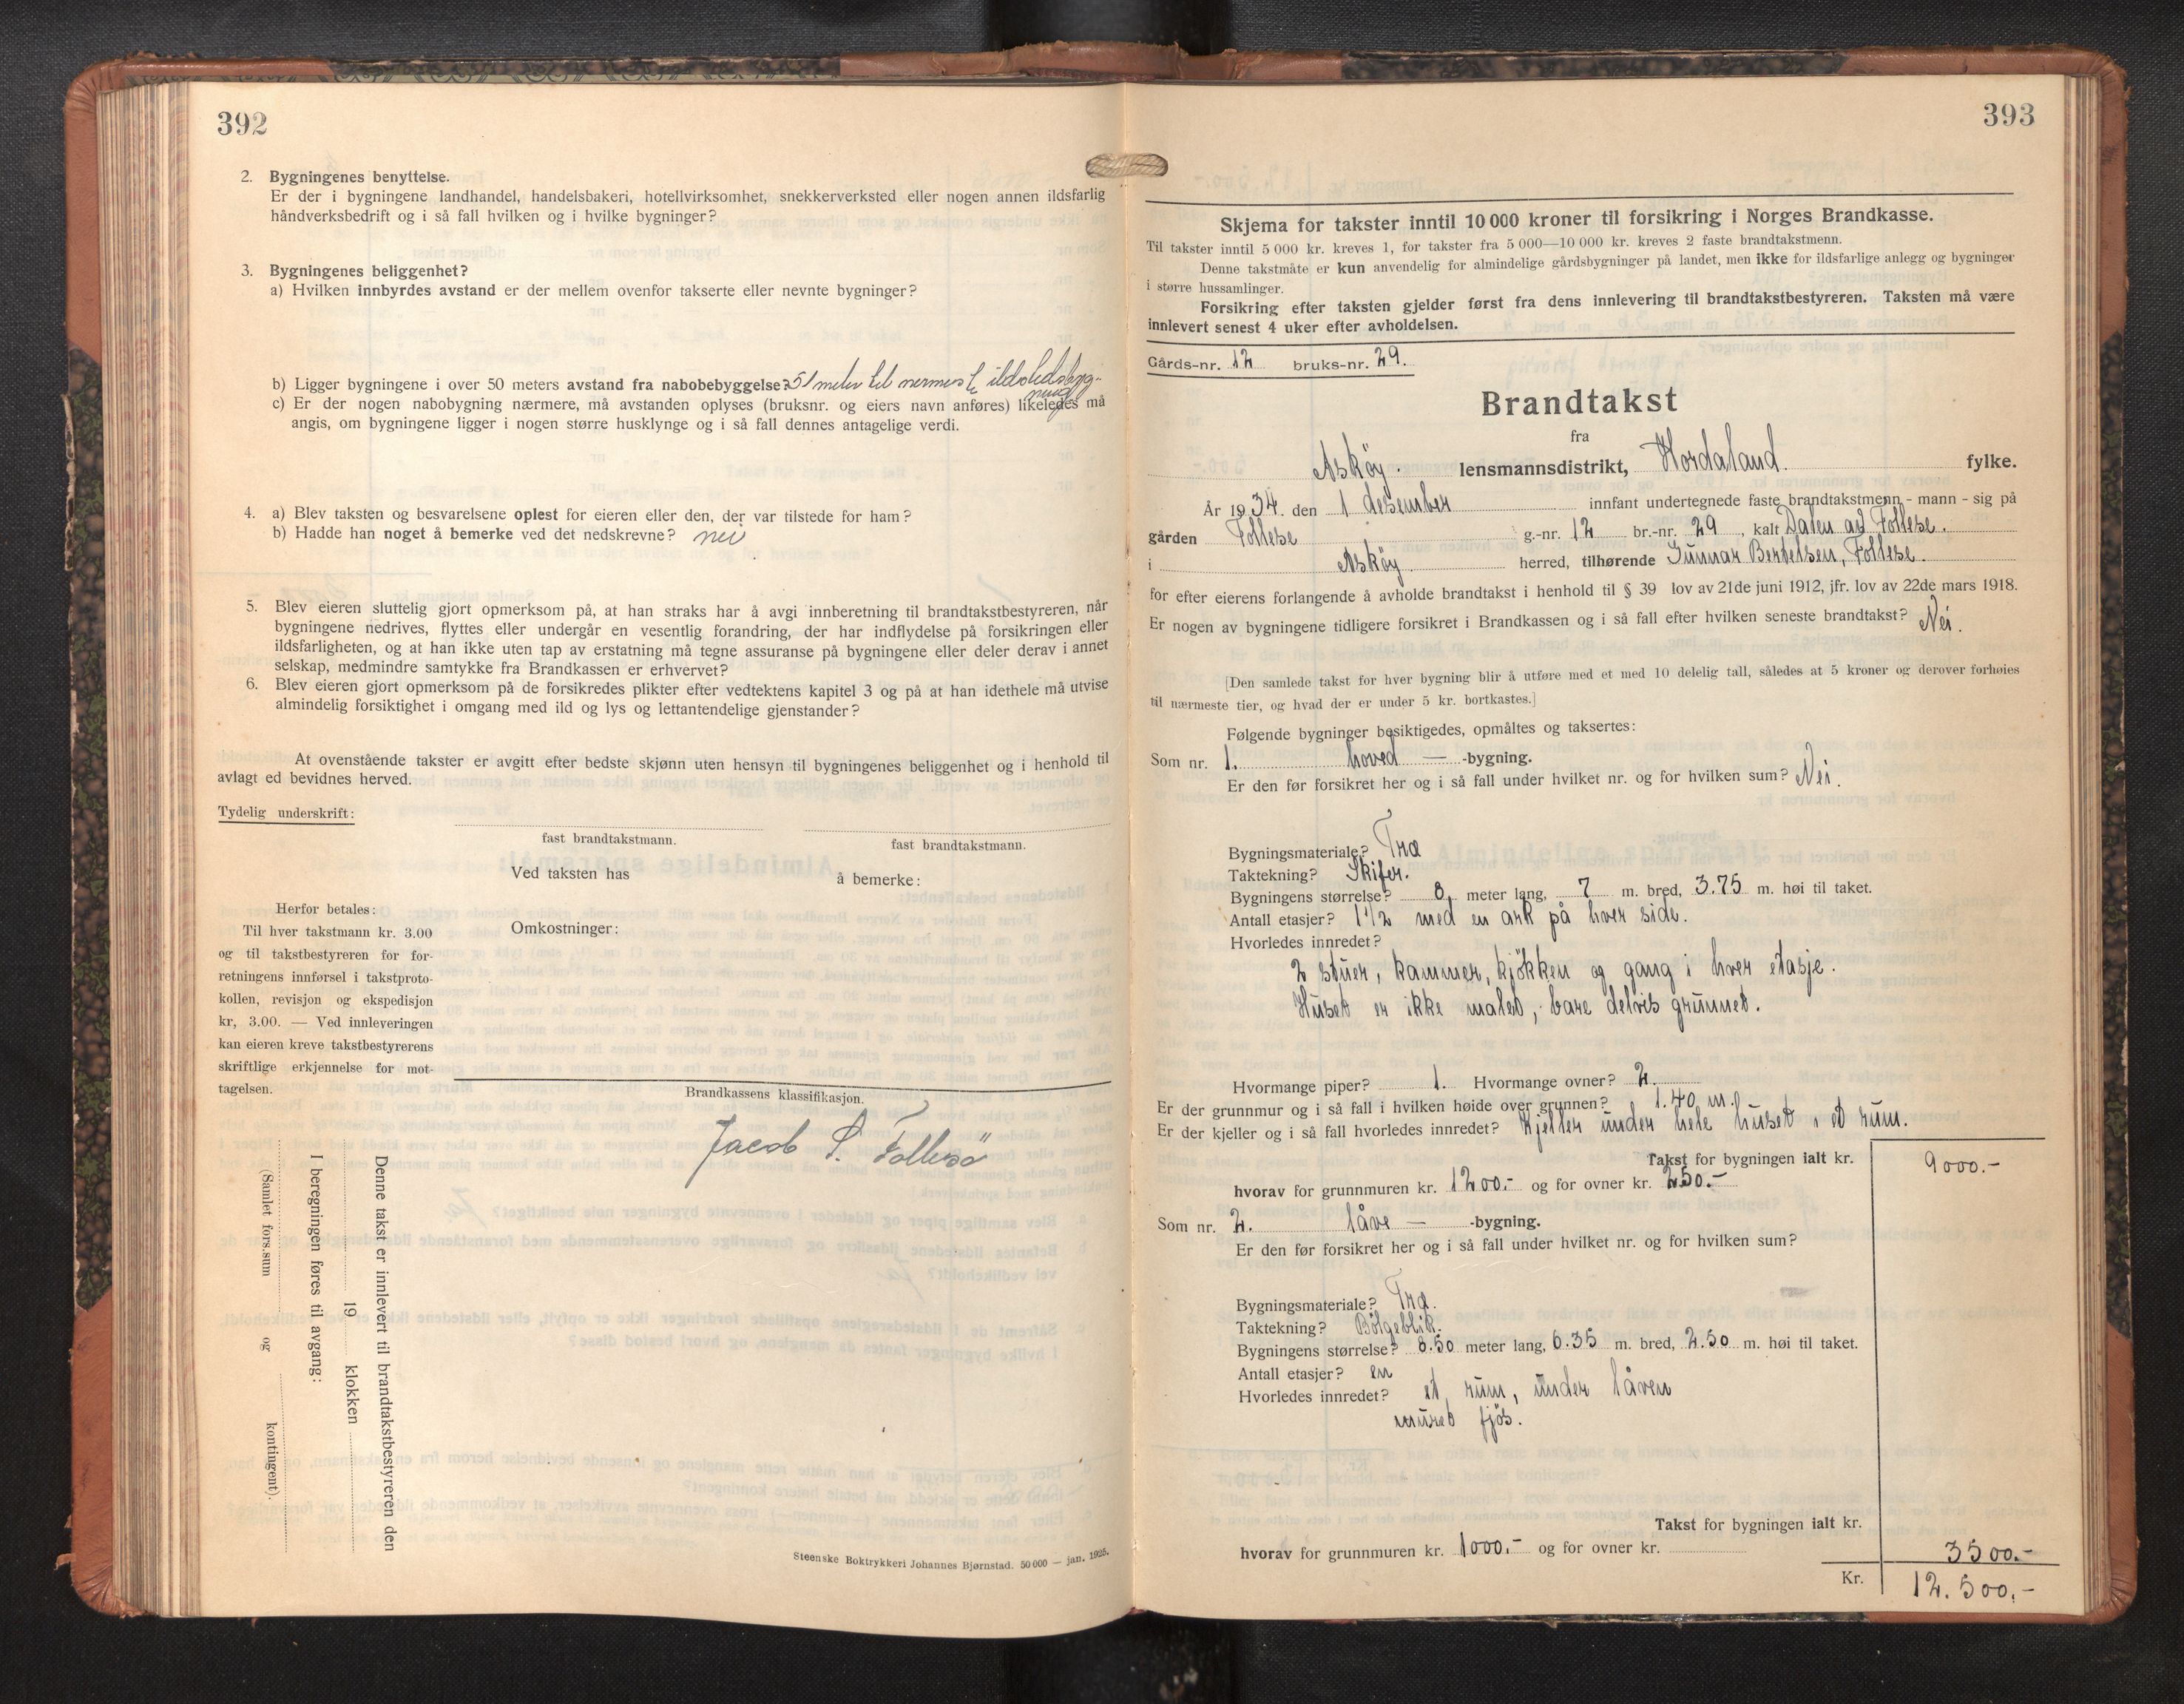 392
2. Bygningenes benyttelse.
Er der i bygningene landhandel, handelsbakeri, hotellvirksomhet, snekkerverksted eller nogen annen ildsfarlig
håndverksbedrift og i så fall hvilken og i hvilke bygninger?
3. Bygningenes beliggenhet?
a) Hvilken innbyrdes avstand er der mellem ovenfor takserte eller nevnte bygninger?
b) Ligger bygningene i over 50 meters avstand fra nabobebyggelse? 51 meter til nermeste ildstedsbyg-
ning
c) Er der nogen nabobygning nærmere, må avstanden oplyses (bruksnr. og eiers navn anføres) likeledes må
angis, om bygningene ligger i nogen større husklynge og i så fall dennes antagelige verdi.
4. a) Blev taksten og besvarelsene oplest for eieren eller den, der var tilstede for ham?
b) Hadde han noget å bemerke ved det nedskrevne? nei
5. Blev eieren sluttelig gjort opmerksom på, at han straks har å avgi innberetning til brandtakstbestyreren, når
bygningene nedrives, flyttes eller undergår en vesentlig forandring, der har indflydelse på forsikringen eller
ildsfarligheten, og at han ikke uten tap av erstatning må tegne assuranse på bygningene eller deler derav i annet
selskap, medmindre samtykke fra Brandkassen er erhvervet?
6. Blev eieren gjort opmerksom på de forsikredes plikter efter vedtektens kapitel 3 og på at han idethele må utvise
almindelig forsiktighet i omgang med ild og lys og lettantendelige gjenstander?
At ovenstående takster er avgitt efter bedste skjønn uten hensyn til bygningenes beliggenhet og i henhold til
avlagt ed bevidnes herved.
Tydelig underskrift:
fast brandtakstmann. fast brandtakstmann.
Ved taksten has å bemerke:
Herfor betales:
Til hver takstmann kr. 3.00
og til takstbestyreren for for-
retningens innførsel i takstproto-
kollen, revisjon og ekspedisjon
kr, 3.00. — Ved innleveringen
kan eieren kreve takstbestyrerens
skriftlige erkjennelse for mot-
tagelsen.
Omkostninger:
Brandkassens klassifikasjon.
Jacob S. Follesö
Denne takst er innlevert til brandtakstbestyreren den
19 klokken
I beregningen føres til avgang:
(Samlet fors.sum og kontingent).
Steenske Boktrykkeri Johannes Bjørnstad. 50 000 — jan. 1925.
393
Skjema for takster inntil 10 000 kroner til forsikring i Norges Brandkasse.
Til takster inntil 5 000 kr. kreves 1, for takster fra 5 000—10 000 kr. kreves 2 faste brandtakstmenn.
Denne takstmåte er kun anvendelig for almindelige gårdsbygninger på landet, men ikke for ildsfarlige anlegg og bygninger
i større hussamlinger.
Forsikring efter taksten gjelder først fra dens innlevering til brandtakstbestyreren. Taksten må være
innlevert senest 4 uker efter avholdelsen.
Gårds-nr. 12 bruks-nr. 29.
Brandtakst
fra
Askøy. lensmannsdistrikt, Hordaland. fylke.
År 1934. den 1 desember innfant undertegnede faste brandtakstmenn - mann - sig på
gården Follese g.-nr. 12 br.-nr. 29, kalt Dalen av Follese.
i Askøy. herred, tilhørende Gunnar Bertelsen, Follese.
for efter eierens forlangende å avholde brandtakst i henhold til § 39 lov av 21de juni 1912, jfr. lov av 22de mars 1918.
Er nogen av bygningene tidligere forsikret i Brandkassen og i så fall efter hvilken seneste brandtakst? Nei.
[Den samlede takst for hver bygning blir å utføre med et med 10 delelig tall, således at 5 kroner og derover forhøies
til nærmeste tier, og hvad der er under 5 kr. bortkastes.]
Følgende bygninger besiktigedes, opmåltes og taksertes:
Som nr. 1. hoved — -bygning.
Er den før forsikret her og i så fall under hvilket nr. og for hvilken sum? Nei.
Bygningsmateriale? Træ
Taktekning? Skifer.
Bygningens størrelse? 8, meter lang, 7 m. bred, 3.75 m. høi til taket.
Antall etasjer? 1 1/2 med en ark på hver side.
Hvorledes innredet?
2 stuer, kammer, kjökken og gang i hver etasje.
Huset er ikke malet, bare delvis grunnet.
Hvormange piper? 1. Hvormange ovner? 2.
Er der grunnmur og i så fall i hvilken høide over grunnen? 1.40 m.
Er der kjeller og i så fall hvorledes innredet? Kjeller under hele huset i et rum.
Takst for bygningen ialt kr. 9000.-
hvorav for grunnmuren kr. 1200.- og for ovner kr. 250.-
Som nr. 2. låve — -bygning.
Er den før forsikret her og i så fall under hvilket nr. og for hvilken sum?
Bygningsmateriale? Træ.
Taktekning? Bölgeblik.
Bygningens størrelse? 8.50 meter lang, 6.35 m. bred, 2.50 m. høi til taket.
Antall etasjer? en
Hvorledes innredet? et rum, under låven
muret fjös.
Takst for bygningen ialt kr.
hvorav for grunnmuren kr. 1000.- og for ovner kr. 3500.-
Kr. 12.500,-